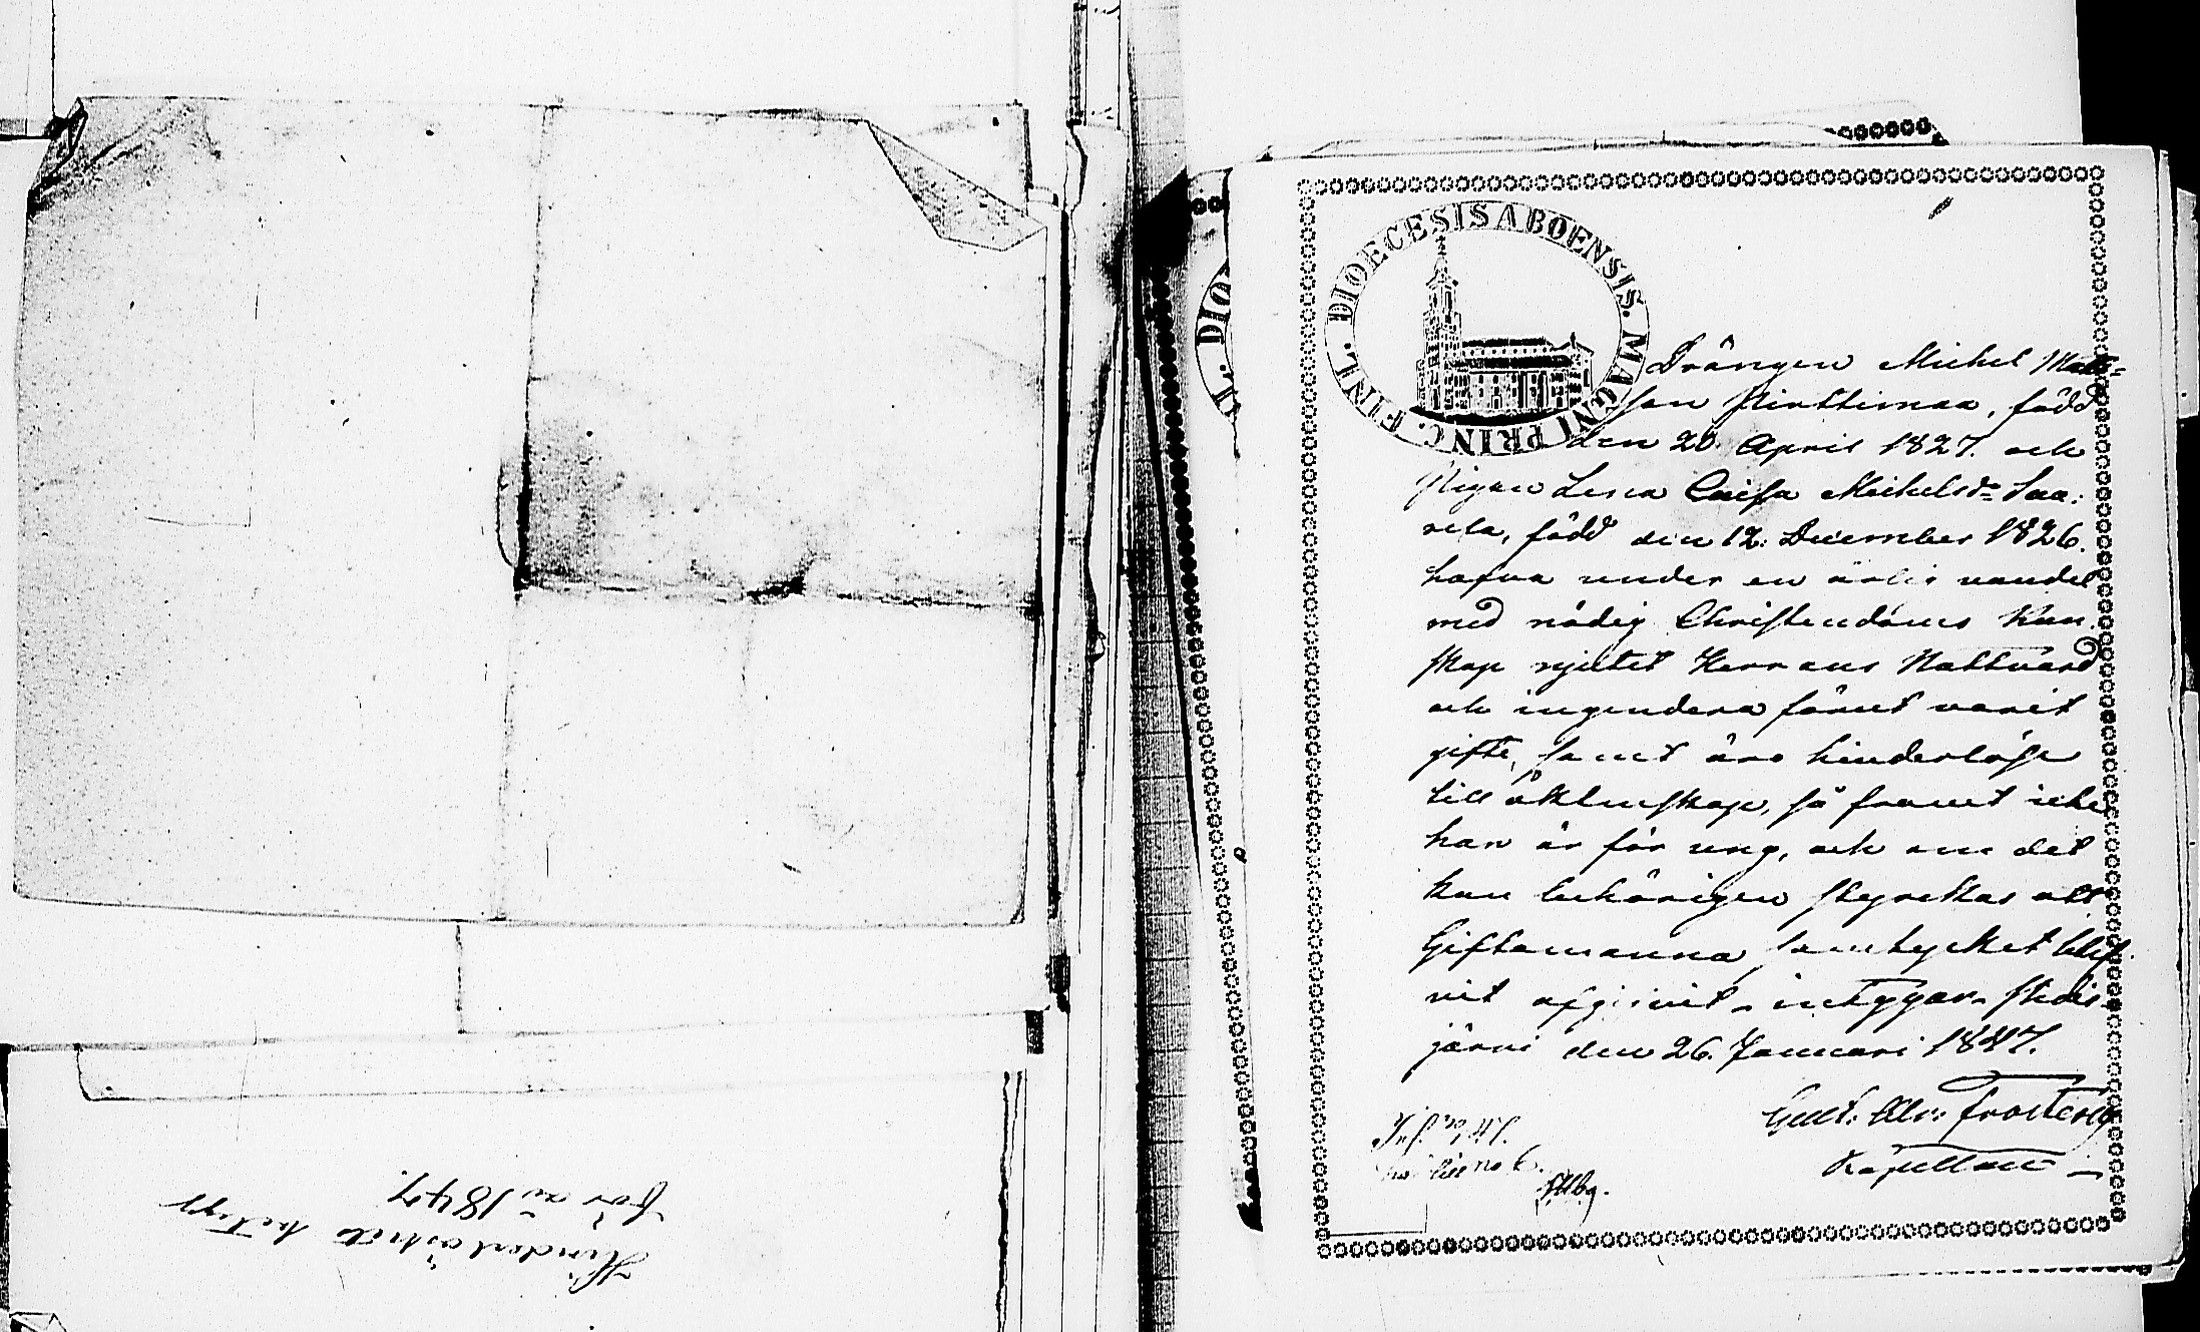 Hinderlöshets betyg
för år 1847.
DIOECESIS ABOENSIS. MAGNI PRINC. FINL.
DIO
L.
Drängen Michel Matts=
son Pirttimaa, född
den 20. April 1827. och
Pigan Lena Caisa Michelsdr Saa-
rela, född den 12. December 1826.
hafva under en ärlig vandel
med nödig Christendoms kun-
skap njutit Herrans Nattvard
och ingendera förut varit
gifte, samt äro hinderlöse
till äktenskap, så framt icke
han är för ung, och om det
kan behörigen styrckas att
Giftomanna samtycket blif-
vit afgivit, intygar
järvi den 26. Januari 1847.
Gust. Alr. Frosterus
Kapellan
till no 6.